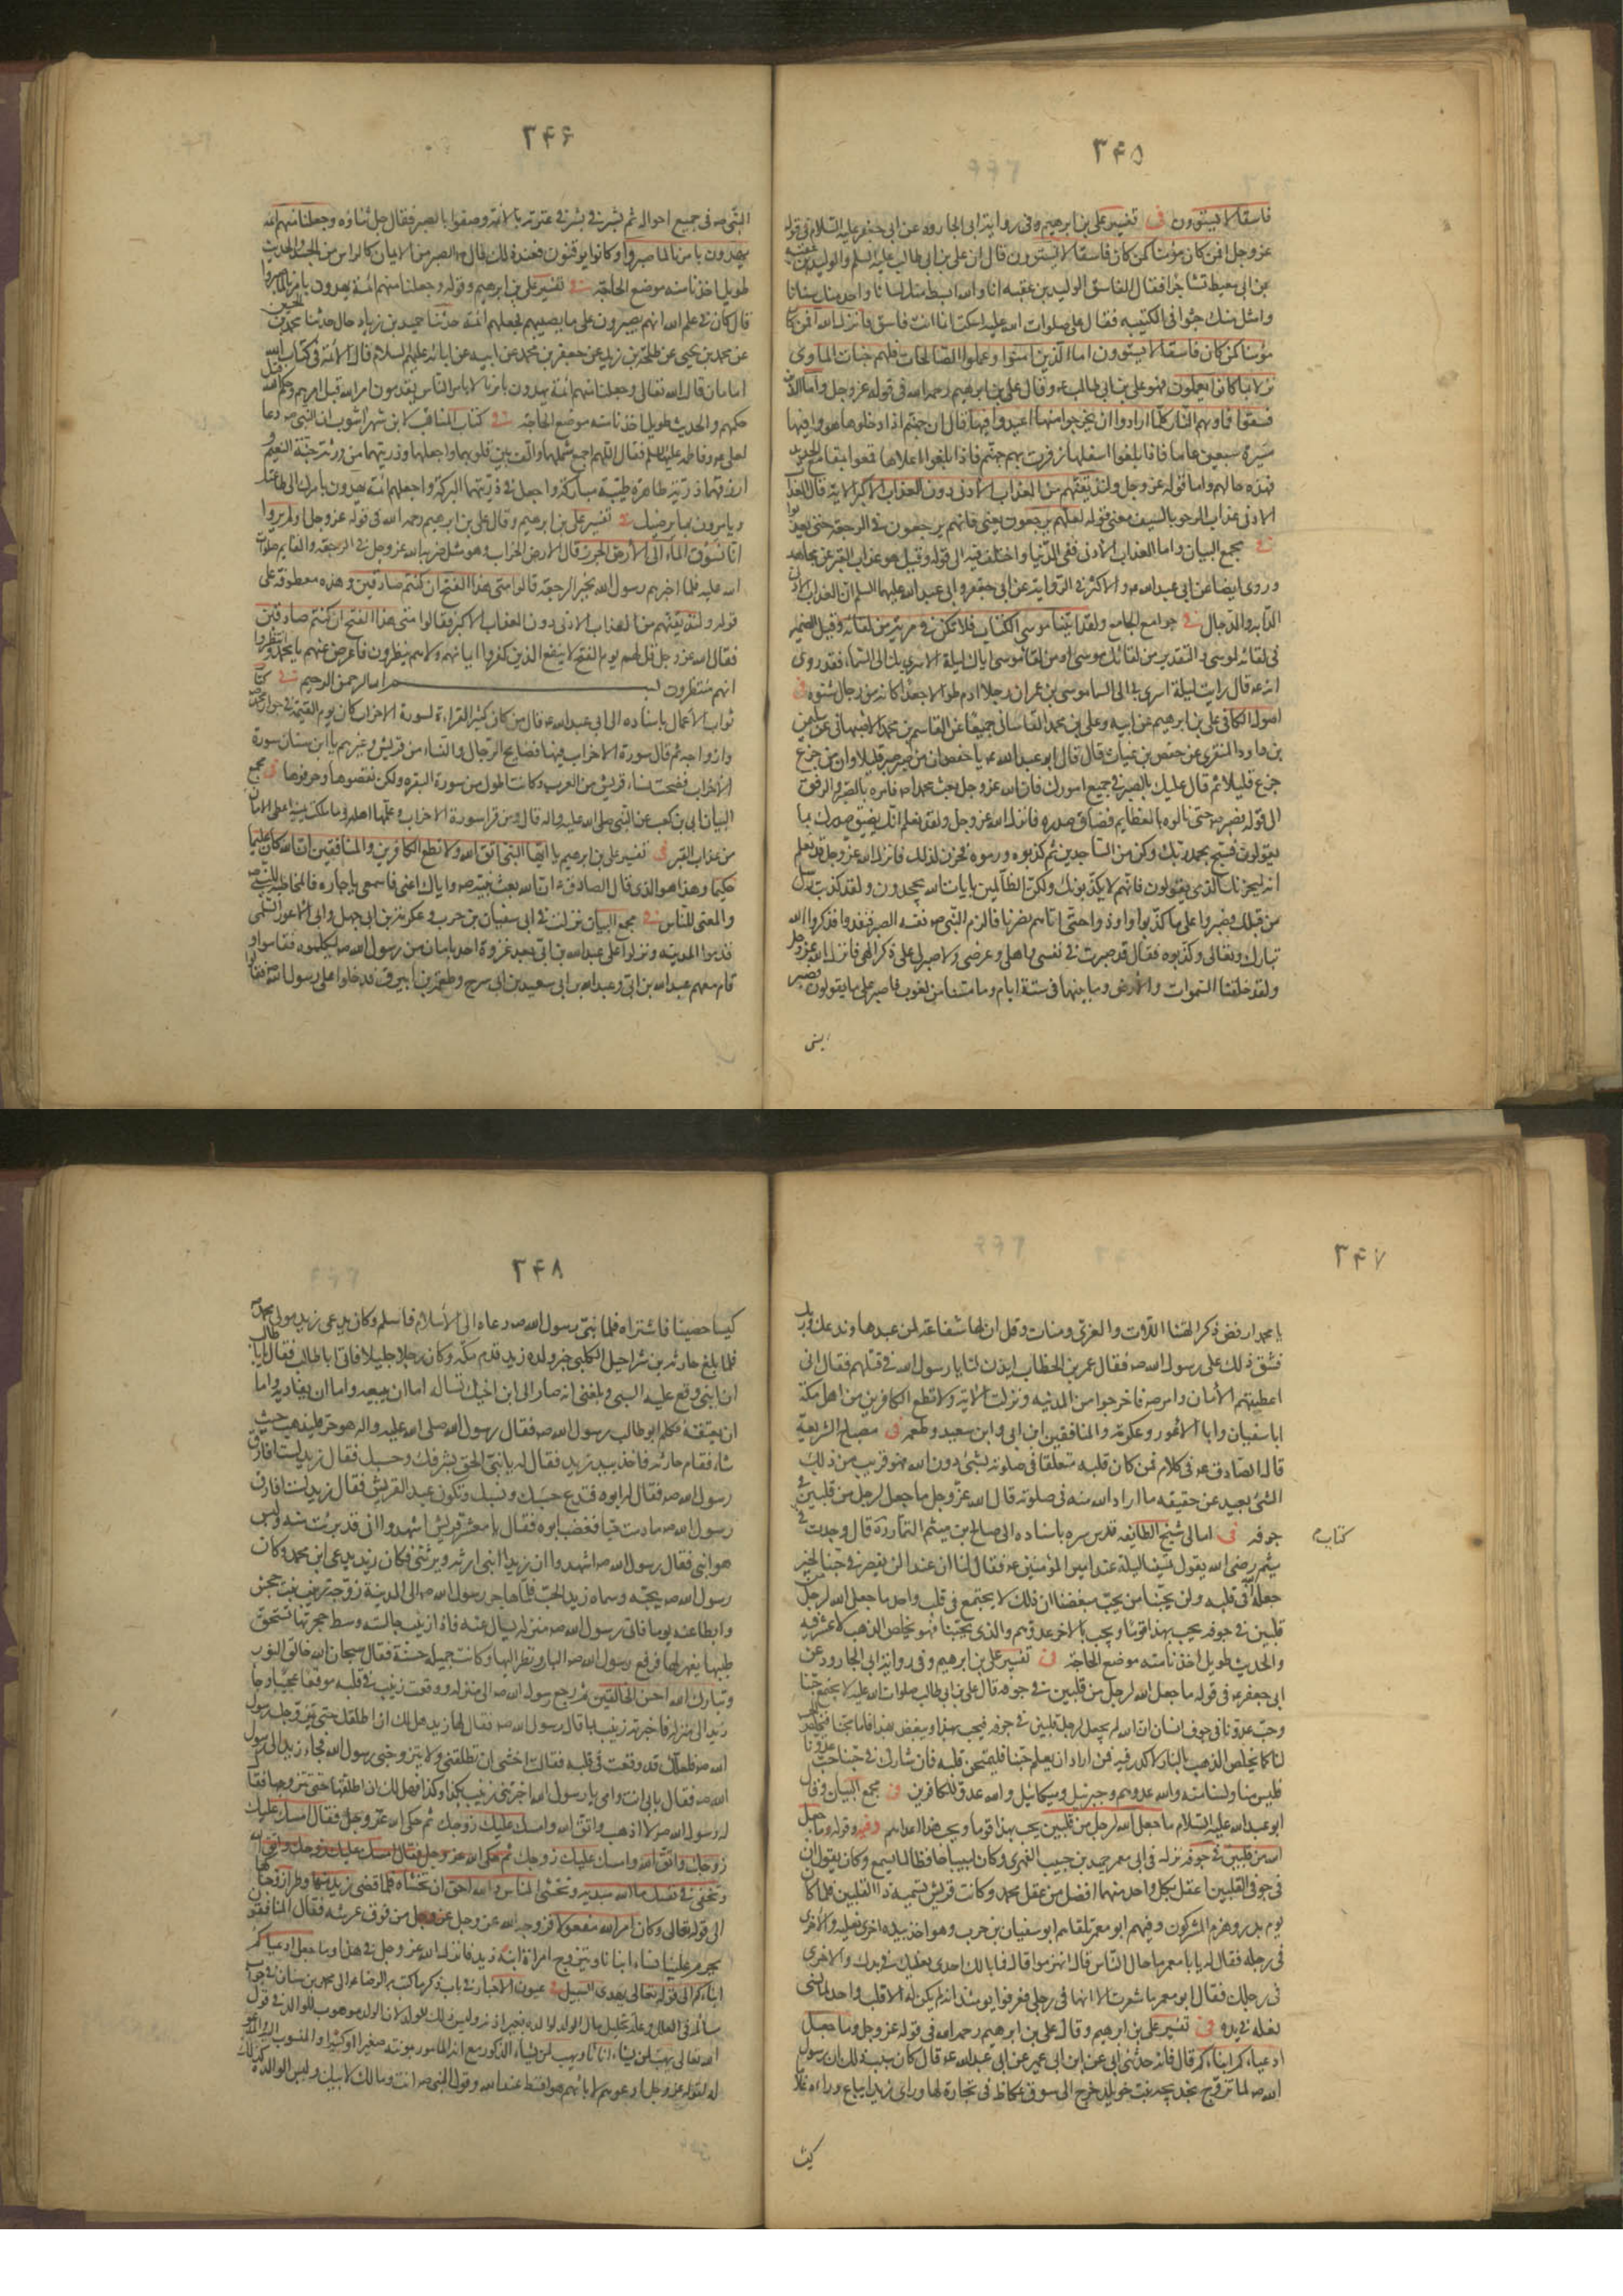 ٣۴۵
فاسقا لا يستوون فى تفسير على بن ابرهيم وفى رواية ابى الجارود عن ابى جعفر عليه السلام فى قوله
عز وجل افمن كان مؤمنا كمن كان فاسقا لا يستوون قال ان على بن ابى طالب عليه السلم والوليد بن عقبه
بن ابى معيط تشاجرا فقال الفاسق الوليد بن عقبه انا والله ابسط منك لسانا واحد منك سنانا
وامثل منك جثوا فى الكتيبه فقال على صلوات الله عليه اسكت انما انت فاسق فانزل الله افمن كان
مؤمنا كمن كان فاسقا لا يستوون اما الذين امنوا وعملوا الصالحات فلهم جنات الماوى
نزلا بما كانوا يعملون فهو على بن ابى طالب ع وقال على بن ابرهيم رحمه الله فى قوله عز وجل واما الذين
فسقوا فماويهم النار كلما ارادوا ان يخرجوا منها اعيدوا فيها قال ان جهنم اذا دخلوها هووا فيها
مسيرة سبعين عاما فاذا بلغوا اسفلها زفرت بهم جهنم فاذا بلغوا اعلاها قمعوا بمقامع الحديد
فهذه حالهم واما قوله عز وجل ولنذيقنهم من العذاب الادنى دون العذاب الاكبر الاية قال العذاب
الادنى عذاب الرجعه بالسيف معنى قوله لعلهم يرجعون يعنى فانهم يرجعون فى الرجعة حتى يعذبوا
فى مجمع البيان واما العذاب الادنى ففى الدنيا واختلف فيه الى قوله وقيل هو عذاب القبر عن مجاهد
وروى ايضا عن ابى عبد الله ع والاكثر فى الرواية عن ابى جعفر وابى عبد الله عليهما السلم ان العذاب الادنى
الدابه والدجال فى جوامع الجامع ولقد اتينا موسى الكتاب فلا تكن فى مرية من لقائه وقيل الضمير
فى لقائه لموسى والتقدير من لقائك موسى او من لقاء موسى اياك ليلة الاسرى بك الى السماء فقد روى
انه ع قال رايت ليلة اسرى بى الى السما موسى بن عمران رجلا ادم طوالا جعدا كانه من رجال شنوه فى
اصول الكافى على بن ابرهيم عن ابيه وعلى بن محمد القاسانى جميعا عن القاسم بن محمد الاصبهانى عن سليمن
بن داود المنقرى عن حفص بن غياث قال قال ابو عبد الله ع يا حفص ان من صبر صبر قليلا وان من جزع
جزع قليلا ثم قال عليك بالصبر فى جميع امورك فان الله عز وجل بعث محمدا ص فامره بالصبر والرفق
الى قوله فصبر ص حتى نالوه بالعظايم فضاق صدره فانزل الله عز وجل ولقد نعلم انك يضيق صدرك بما
يقولون فسبح بحمد ربك وكن من الساجدين ثم كذبوه ورموه فحزن لذلك فانزل الله عز وجل قد نعلم
انه ليحزنك الذى يقولون فانهم لا يكذبونك ولكن الظالمين بايات الله يجحدون ولقد كذبت رسل
من قبلك فصبروا على ما كذبوا واوذوا حتى اتاهم نصرنا فالزم النبى ص نفسه الصبر فتعدوا فذكروا الله
تبارك وتعالى وكذبوه فقال قد صبرت فى نفسى واهلى وعرضى ولا صبر لى على ذكر الهى فانزل الله عز وجل
ولقد خلقنا السموات والارض وما بينهما فى ستة ايام وما مسنا من لغوب فاصبر على ما يقولون فصبر
النبى
٣۴۶
النبى ص فى جميع احواله ثم بشر فى عترته بالائمة وصفوا بالصبر فقال جل ثناؤه وجعلنا منهم ائمه
يهدون بامرنا لما صبروا وكانوا باياتنا يوقنون فعند ذلك قال ص الصبر من الايمان كالراس من الجسد والحديث
طويل اخذنا منه موضع الحاجة فى تفسير على بن ابرهيم وقوله وجعلنا منهم ائمة يهدون بامرنا لما صبروا
قال كان فى علم الله انهم يصبرون على ما يصيبهم فجعلهم ائمة حدثنا حميد بن زياد قال حدثنا محمد بن الحسين
عن محمد بن يحيى عن طلحة بن زيد عن جعفر بن محمد عن ابيه عن ابائه عليهم السلام قال الائمة فى كتاب الله
امامان قال الله تعالى وجعلنا منهم ائمة يهدون بامرنا لا بامر الناس يقدمون امر الله قبل امرهم وحكم الله قبل
حكمهم والحديث طويل اخذنا منه موضع الحاجة فى كتاب المناقب لابن شهراشوب ان النبى ص دعا
لعلى ع وفاطمه عليها السلم فقال اللهم اجمع شملهما والف بين قلوبهما واجعلهما وذريتهما من ورثة جنة النعيم و
ارزقهما ذرية طاهرة طيبة مباركة واجعل فى ذريتهما البركة واجعلهم ائمة يهدون بامرك الى طاعتك
ويامرون بما يرضيك فى تفسير على بن ابرهيم وقال على بن ابرهيم رحمه الله فى قوله عز وجل اولم يروا
انا نسوق الماء الى الارض الجرز قال الارض الخراب وهو مثل ضربه الله عز وجل فى الرجعة والقايم صلوات
الله عليه فلما اخبرهم رسول الله بخبر الرجعة قالوا متى هذا الفتح ان كنتم صادقين وهذه معطوفة على
قوله ولنذيقنهم من العذاب الادنى دون العذاب الاكبر فقالوا متى هذا الفتح ان كنتم صادقين
فقال الله عز وجل قل لهم يوم الفتح لا ينفع الذين كفروا ايمانهم ولا هم ينظرون فاعرض عنهم يا محمد وانتظروا
انهم منتظرون بسم الله الرحمن الرحيم فى كتاب
ثواب الاعمال باسناده الى ابى عبد الله ع قال من كان كثير القراءة لسورة الاحزاب كان يوم القيمة فى جوار محمد ص
وازواجه ثم قال سورة الاحزاب فيها فضايح الرجال والنساء من قريش وغيرهم يا ابن سنان سورة
الاحزاب فضحت نساء قريش من العرب وكانت اطول من سورة البقرة ولكن نقصوها وحرفوها فى مجمع
البيان ابى بن كعب عن النبى صلى الله عليه واله قال ومن قرا سورة الاحزاب وعلمها اهله وما ملكت يمينه اعطى الامان
من عذاب القبر فى تفسير على بن ابرهيم يا ايها النبى اتق الله ولا تطع الكافرين والمنافقين ان الله كان عليما
حكيما وهذا هو الذى قال الصادق ع ان الله بعث نبيه ص واياك اعنى فاسمعى يا جاره فالمخاطبة للنبى ص
والمعنى للناس فى مجمع البيان نزلت فى ابى سفيان بن حرب وعكرمة بن ابى جهل وابى الاعور السلمى
قدموا المدينه ونزلوا على عبد الله بن ابى بعد غزوة احد بامان من رسول الله ص ليكلموه فقاموا و
قام معهم عبد الله بن ابى وعبد الله بن ابى سعيد بن ابى سرح وطعمة بن ابيرق فدخلوا على رسول الله ص فقالوا
٣۴٧
يا محمد ارفض ذكر الهتنا اللات والعزى ومنات وقل ان لها شفاعة لمن عبدها وندعك وربك
فشق ذلك على رسول الله ص فقال عمر بن الخطاب ايذن لنا يا رسول الله فى قتلهم فقال انى
اعطيتهم الامان وامر ص فاخرجوا من المدينه ونزلت الاية ولا تطع الكافرين من اهل مكة
ابا سفيان وابا الاعور وعكرمة والمنافقين ابن ابى وابن سعيد وطعمه فى مصباح الشريعة
قال الصادق ع فى كلام فمن كان قلبه متعلقا فى صلوته بشئ دون الله فهو قريب من ذلك
الشئ بعيد عن حقيقه ما اراد الله منه فى صلوته قال الله عز وجل ما جعل لرجل من قلبين فى
جوفه فى امالى شيخ الطائفه قدس سره باسناده الى صالح بن ميثم التمار رة قال وجدت فى
كتاب
ميثم رضى الله يقول تمسينا ليلة عند امير المؤمنين ع فقال لنا ان عبدا لن يقصر فى حبنا لخير
جعله الله فى قلبه ولن يحبنا من يحب مبغضنا ان ذلك لا يجتمع فى قلب واحد ما جعل الله لرجل من
قلبين فى جوفه يحب بهذا قوما ويحب بالاخر عدوهم والذى يحبنا فهو يخلص الذهب لا غش فيه
والحديث طويل اخذنا منه موضع الحاجة فى تفسير على بن ابرهيم وفى رواية ابى الجارود عن
ابى جعفر ع فى قوله ما جعل الله لرجل من قلبين فى جوفه قال على بن ابى طالب صلوات الله عليه لا يجتمع حبنا
وحب عدونا فى جوف انسان ان الله لم يجعل لرجل قلبين فى جوفه فيحب بهذا ويبغض بهذا فاما محبنا فيخلص الحب
لنا كما يخلص الذهب بالنار لا كدر فيه فمن اراد ان يعلم حبنا فليمتحن قلبه فان شارك فى حبنا حب عدونا
فليس منا ولسنا منه والله عدوهم وجبرئيل وميكائيل والله عدو للكافرين فى مجمع البيان وقال
ابو عبد الله عليه السلام ما جعل الله لرجل من قلبين يحب بهذا قوما ويحب بهذا اعداءهم وفيه وقوله وما جعل
الله من قلبين فى جوفه نزل فى ابى معمر حميد بن حبيب الفهرى وكان لبيبا حافظا لما يسمع وكان يقول ان
فى جوفى لقلبين اعقل بكل واحد منهما افضل من عقل محمد وكانت قريش تسميه ذا القلبين فلما كان
يوم بدر وهزم المشركون وفيهم ابو معمر تلقاهم ابو سفيان بن حرب وهو اخذ بيده احدى نعليه والاخرى
فى رجله فقال له يا ابا معمر ما حال الناس قال انهزموا قال فما بالك احدى نعليك فى يدك والاخرى
فى رجلك فقال ابو معمر ما شعرت الا انها فى رجلى فعرفوا يومئذ انه لم يكن له الا قلب واحد لما نسى
نعله فى يده فى تفسير على بن ابرهيم وقال على بن ابرهيم رحمه الله فى قوله عز وجل وما جعل
ادعياءكم ابناءكم قال فانه حدثنى ابى عن ابن ابى عمير عن ابى عبد الله ع قال كان سبب ذلك ان رسول
الله ص لما تزوج بخديجه بنت خويلد خرج الى سوق عكاظ فى تجارة لها وراى زيدا يباع وراه غلاما
كيسا
٣۴٨
كيسا حصينا فاشتراه فلما نبئ رسول الله ص دعاه الى الاسلام فاسلم وكان يدعى زيد مولى محمد ص
فلما بلغ حارثه بن شراحيل الكلبى خبر ولده زيد قدم مكة وكان رجلا جليلا فاتى ابا طالب فقال يا ابا طالب
ان ابنى وقع عليه السبى وبلغنى انه صار الى ابن اخيك تساله اما ان يبيعه واما ان يفاديه واما
ان يعتقه فكلم ابو طالب رسول الله ص فقال رسول الله صلى الله عليه واله هو حر فليذهب حيث
شاء فقام حارثه فاخذ بيد زيد فقال له يا بنى الحق بشرفك وحسبك فقال زيد لست افارق
رسول الله ص فقال له ابوه فتدع حسبك ونسبك وتكون عبدا لقريش فقال زيد لست افارق
رسول الله ص ما دمت حيا فغضب ابوه فقال يا معشر قريش اشهدوا انى قد برئت منه وليس
هو ابنى فقال رسول الله ص اشهدوا ان زيدا ابنى ارثه ويرثنى فكان زيد يدعى ابن محمد وكان
رسول الله ص يحبه وسماه زيد الحب فلما هاجر رسول الله ص الى المدينة زوجه زينب بنت جحش
وابطا عنه يوما فاتى رسول الله ص منزله يسال عنه فاذا زينب جالسة وسط حجرتها تسحق
طيبها بفهر لها فرفع رسول الله ص الباب ونظر اليها وكانت جميلة حسنة فقال سبحان الله خالق النور
وتبارك الله احسن الخالقين ثم رجع رسول الله ص الى منزله ووقعت زينب فى قلبه موقعا عجيبا وجاء
زيد الى منزله فاخبرته زينب بما قال رسول الله ص فقال لها زيد هل لك ان اطلقك حتى يتزوجك رسول
الله ص فلعلك قد وقعت فى قلبه فقالت اخشى ان تطلقنى ولا يتزوجنى رسول الله فجاء زيد الى رسول
الله ص فقال بابى انت وامى يا رسول الله اخبرتنى زينب بكذا وكذا فهل لك ان اطلقها حتى تتزوجها فقال
له رسول الله ص لا اذهب واتق الله وامسك عليك زوجك ثم حكى الله عز وجل فقال امسك عليك
زوجك واتق الله وامسك عليك زوجك ثم حكى الله عز وجل فقال امسك عليك زوجك واتق الله
وتخفى فى نفسك ما الله مبديه وتخشى الناس والله احق ان تخشاه فلما قضى زيد منها وطرا زوجناكها
الى قوله تعالى وكان امر الله مفعولا فزوجه الله عز وجل من فوق عرشه فقال المنافقون
يحرم علينا نساء ابنائنا ويتزوج امراة ابنه زيد فانزل الله عز وجل فى هذا وما جعل ادعياءكم
ابناءكم الى قوله تعالى يهدى السبيل فى عيون الاخبار فى باب ذكر ما كتب به الرضا ع الى محمد بن سنان فى جواب
مسائله فى العلل وعلة تحليل مال الولد لوالده بغير اذنه وليس ذلك للولد لان الولد موهوب للوالد فى قول
الله تعالى يهب لمن يشاء اناثا ويهب لمن يشاء الذكور مع انه الماخوذ بمؤنته صغيرا او كبيرا والمنسوب اليه والمدعو
له لقوله عز وجل ادعوهم لابائهم هو اقسط عند الله وقول النبى ص انت ومالك لابيك وليس الوالدة كذلك